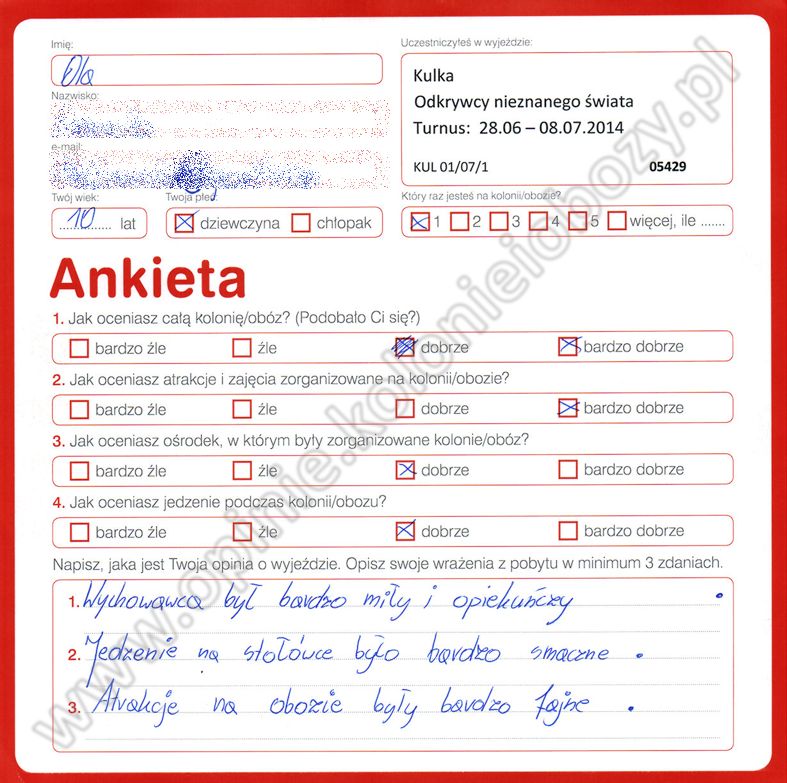 Imię:
Ola
Uczestniczyłeś w wyjeździe:
Kulka
Odkrywcy nieznanego świata
Turnus: 28.06 – 08.07.2014
KUL 01/07/1 05429
Nazwisko:
e-mail:
Twój wiek:
10 lat
Twoja płeć:
dziewczyna chłopak
Który raz jesteś na kolonii/obozie?
1 2 3 4 5 więcej, ile .......
Ankieta
1. Jak oceniasz całą kolonię/obóz? (Podobało Ci się?)
bardzo źle źle dobrze bardzo dobrze
2. Jak oceniasz atrakcje i zajęcia zorganizowane na kolonii/obozie?
bardzo źle źle dobrze bardzo dobrze
3. Jak oceniasz ośrodek, w którym były zorganizowane kolonie/obóz?
bardzo źle źle dobrze bardzo dobrze
4. Jak oceniasz jedzenie podczas kolonii/obozu?
bardzo źle źle dobrze bardzo dobrze
Napisz, jaka jest Twoja opinia o wyjeździe. Opisz swoje wrażenia z pobytu w minimum 3 zdaniach.
1. Wychowawca był bardzo miły i opiekuńczy .
2. Jedzenie na stołówce było bardzo smaczne .
3. Atrakcje na obozie były bardzo fajne .
www.opinie.kolonieiobozy.pl